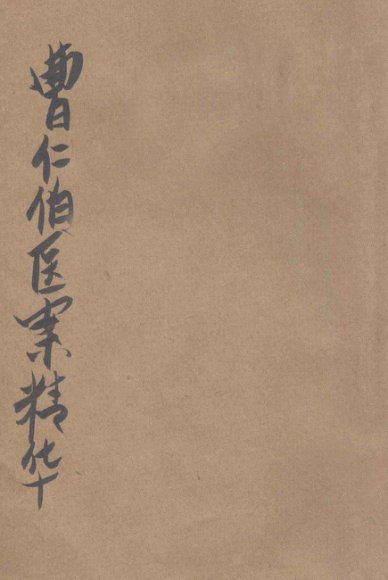 曹仁伯医案精华